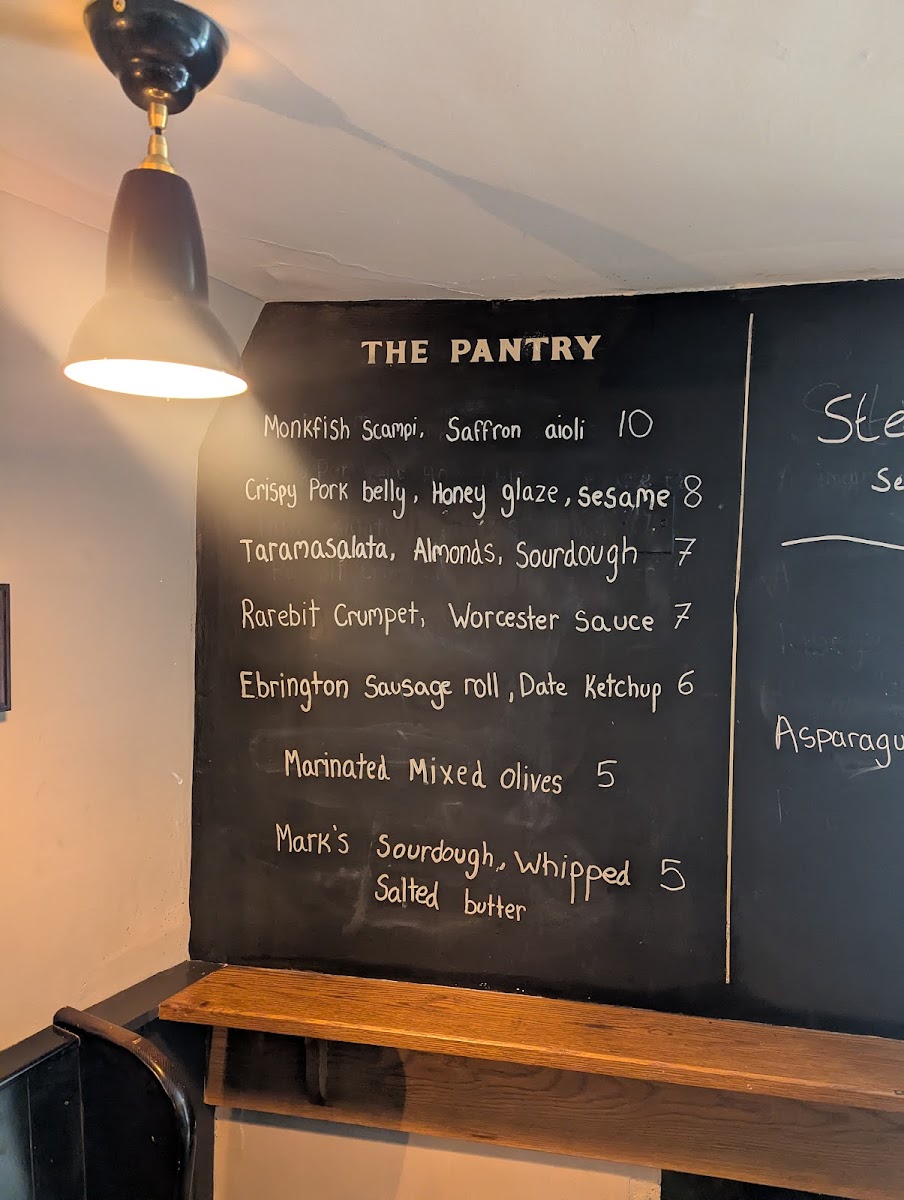 THE PANTRY
Monkfish Scampi, Saffron aioli 10
Crispy Pork belly, Honey glaze, sesame 8
Taramasalata, Almonds, Sourdough 7
Rarebit Crumpet, Worcester sauce 7
Ebrington Sausage roll, Date Ketchup 6
Marinated Mixed Olives 5
Mark's Sourdough, Whipped 5
Salted butter
Ste
Se
Asparagu